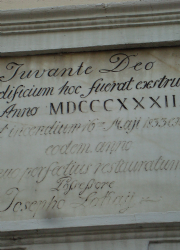 Juvante Deo
dificium hoc fuerat exstru
Anno MDCCCXXXII
incenditur 16 Maji 1833
eodem anno
perfectius restauratum
Josepho